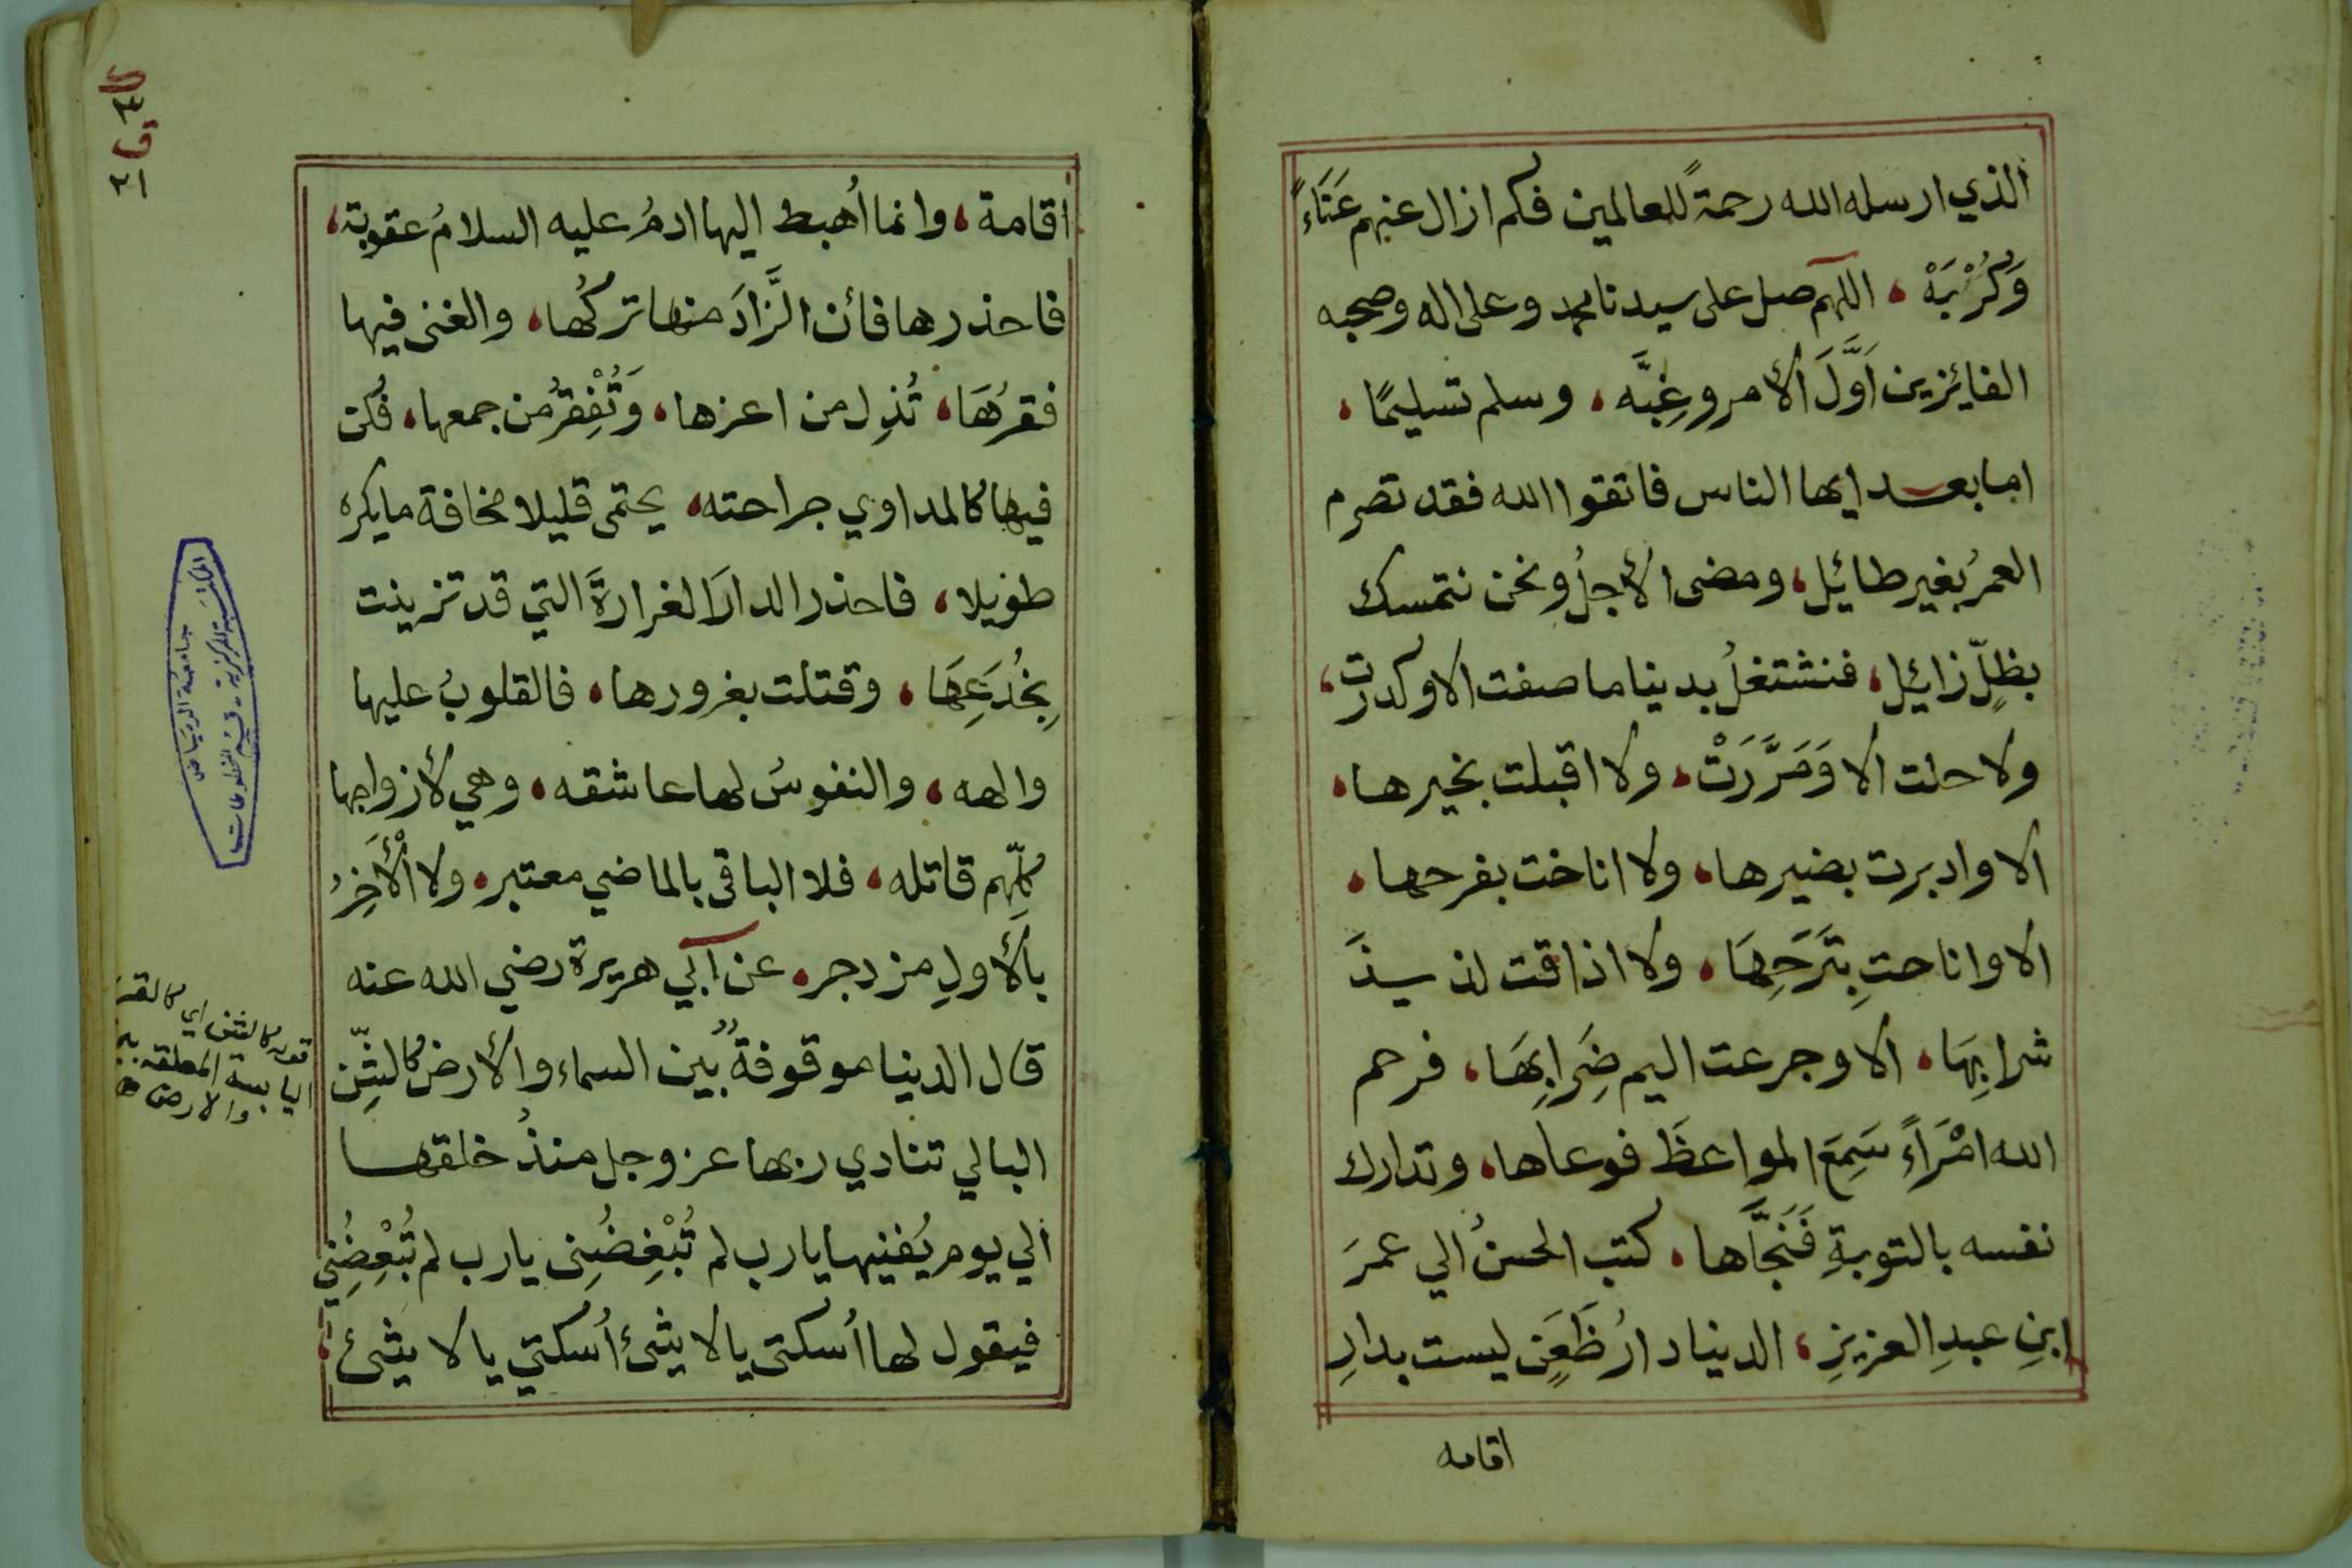 الذي ارسله الله رحمةً للعالمين فكم ازال عنهم عَنَاءً
وَكُرْبَهْ، اللهم صل على سيدنا محمد وعلى اله وصحبه
الفايزين اَوَّلَ الأمر وغِبَّه، وسلم تسليمًا،
اما بعد ايها الناس فاتقوا الله فقد تصرم
العمرُ بغير طائيل، ومضى الأجلُ ونحن نتمسك
بظِلّ زائيل، فنشتغلُ بدينا ما صفت الا وكدرت،
ولا حلت الا وَمَرَّرَتْ، ولا اقبلت بخيرها،
الا وادبرت بضيرها، ولا اناخت بفرحها،
الا واناحتِ بِتَرَحِهَا، ولا اذاقت لذيذَ
شرابِهَا، الا وجرعت اليم ضِرَابِهَا، فرحم
الله امْرَاءً سَمِعَ المواعظَ فوعاها، وتدارك
نفسه بالتوبةِ فَنَجَّاها، كتب الحسنُ الي عمرَ
ابنِ عبدِ العزيزِ، الدنيا دارُ ظَعَنٍ ليست بدارِ
اقامه
اقامة، وانما أُهبط اليها ادمُ عليه السلامُ عقوبة،
فاحذرها فأن الزَّادَ منها تركُها، والغنى فيها
فقرُهَا، تُذِل من اعزها، وَتُفْقِرُ من جمعها، فكن
فيها كالمداوي جراحته، يحتمى قليلا مخافة ما يكره
طويلا، فاحذر الدارَ الغرارةَ التي قد تزينت
بِخُدَعِهَا، وقتلت بغرورها، فالقلوبُ عليها
والهه، والنفوسُ لها عاشقه، وهي لأزواجها
كلِّهم قاتله، فلا الباقى بالماضي معتبر، ولا الْأَخِرُ
بالأولِ مزدجر، عن ابي هريرة رضي الله عنه
قال الدنيا موقوفةٌ بين السماء والأرض كالشِّن
البالي تنادي ربها عز وجل منذُ خلقها
الي يوم يُفنيها يا رب لم تُبْغِضُنِى يا رب لم تُبْغِضُنِي
فيقول لها اُسكتى يا لا شئ اُسكتي يا لا شئ،
قوله كالشن اي كالقربة
اليابسة المعلقه بين
والارض
المكتبة المركزية - قسم المخطوطات
جامعة الرياض